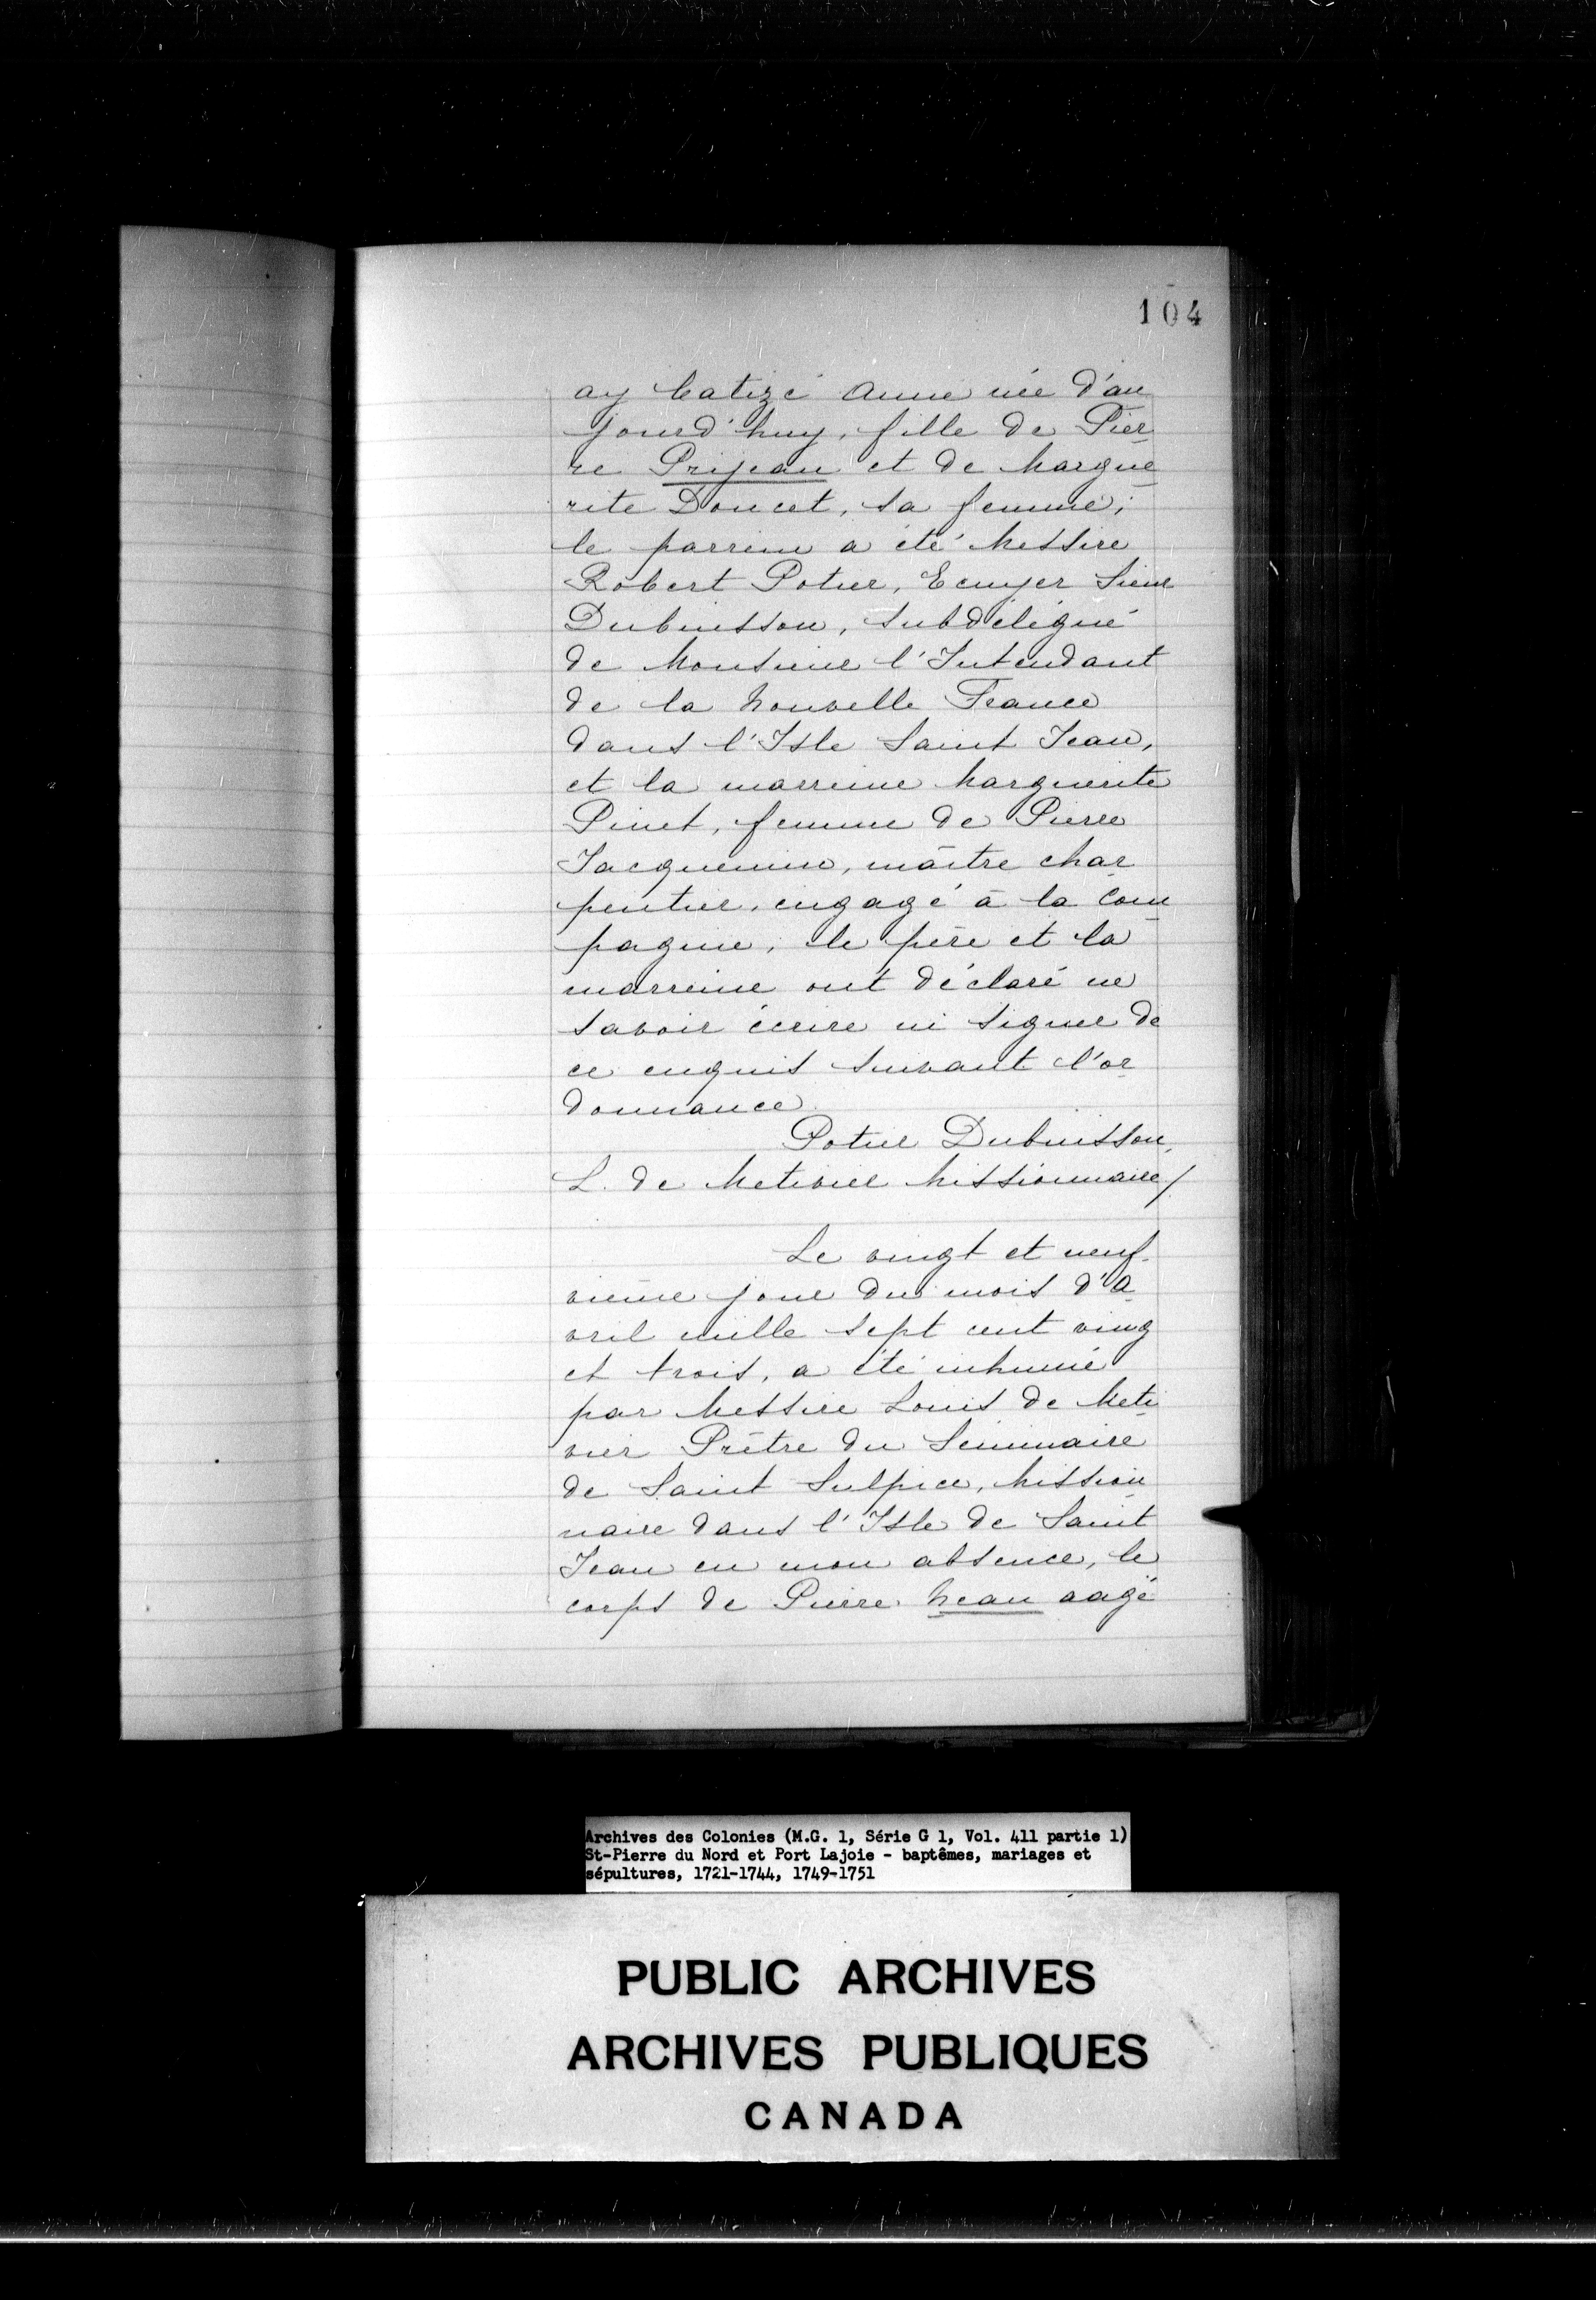 104
ay batizé Anne née d'au
jourd'huy, fille de Pier
re Prijeau et de Margue
rite Doucet, sa femme;
le parrein a été Messire
Robert Potier, Ecuyer Sieur
Dubuisson, subdélégué
de Monsieur l'Intendant
de la Nouvelle France
dans l'Isle Saint Jean,
et la marreine Marguerite
Pinet, femme de Pierre
Jacquemin, maître char
pentier, engagé à la Com
pagnie, le père et la
marreine ont déclaré ne
savoir écrire ni signer de
ce enquis suivant l'or
donnance.
Potier Dubuisson,
L. de Metivier Missionnaire/
Le vingt et neuf
vième jour du mois d'A
vril mille sept cent ving
et trois, a été inhumé
par Messire Louis de Meti
vier Prêtre du Séminaire
de Saint Sulpice, Mission
naire dans l'Isle de Saint
Jean en mon absence, le
corps de Pierre Neau aagé
Archives des Colonies (M.G. 1, Série G 1, Vol. 411 partie 1)
St-Pierre du Nord et Port Lajoie - baptêmes, mariages et
sépultures, 1721-1744, 1749-1751
PUBLIC ARCHIVES
ARCHIVES PUBLIQUES
CANADA